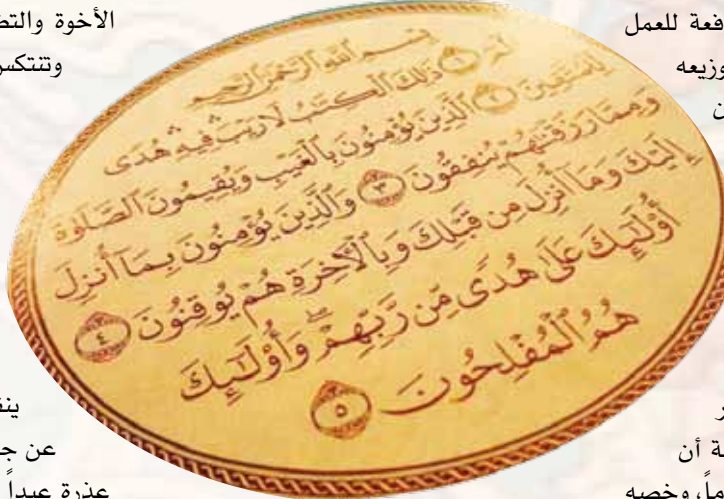 الأخوة والتض
وتنتكس
فعة للعمل
وزيعه
بِسْمِ ٱللَّهِ ٱلرَّحْمَٰنِ ٱلرَّحِيمِ
الٓمٓ ١ ذَٰلِكَ ٱلْكِتَٰبُ لَا رَيْبَ ۛ فِيهِ ۛ هُدًى
لِّلْمُتَّقِينَ ٢ ٱلَّذِينَ يُؤْمِنُونَ بِٱلْغَيْبِ وَيُقِيمُونَ ٱلصَّلَوٰةَ
وَمِمَّا رَزَقْنَٰهُمْ يُنفِقُونَ ٣ وَٱلَّذِينَ يُؤْمِنُونَ بِمَآ أُنزِلَ
إِلَيْكَ وَمَآ أُنزِلَ مِن قَبْلِكَ وَبِٱلْأَخِرَةِ هُمْ يُوقِنُونَ ٤
أُو۟لَٰٓئِكَ عَلَىٰ هُدًى مِّن رَّبِّهِمْ ۖ وَأُو۟لَٰٓئِكَ
هُمُ ٱلْمُفْلِحُونَ ٥
ين
عن ج
عذرة عبداً
ر
ة أن
ملاً، وخصبه